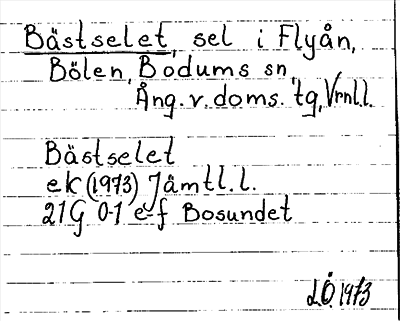 Bästselet, sel i Flyån,
Bölen, Bodums sn,
Ång. v. doms. tg, Vrnl.l.
Bästselet
ek (1973) Jämtl. l.
21G 0-1 e-f Bosundet
L.Ö. 1973